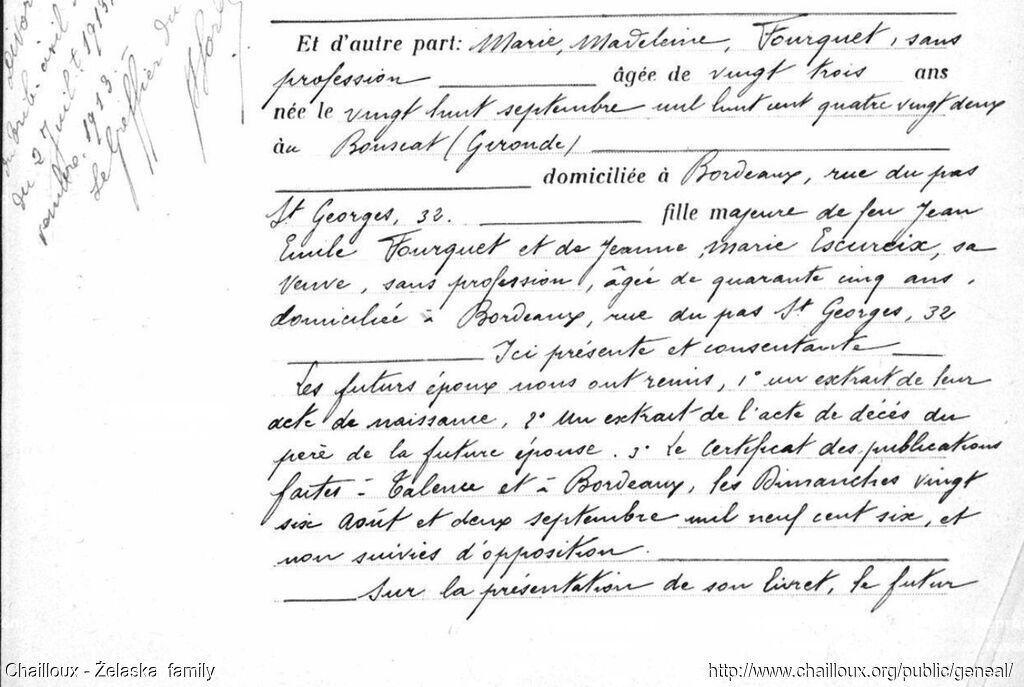 du 2 Juillet 1913
1913
Le Greffier du
Et d'autre part: Marie, Madeleine, Fourquet, sans
profession âgée de vingt trois ans
née le vingt huit septembre mil huit cent quatre vingt deux
au Bouscat (Gironde)
domiciliée à Bordeaux, rue du pas
St Georges, 32. fille majeure de feu Jean
Emile Fourquet et de Jeanne, Marie Escureix, sa
veuve, sans profession, âgée de quarante cinq ans,
domiciliée à Bordeaux, rue du pas St Georges, 32
Ici présente et consentante
Les futurs époux nous ont remis, 1° un extrait de leur
acte de naissance, 2° Un extrait de l'acte de décés du
père de la future épouse. 3° Le Certificat des publications
faites à Talence et à Bordeaux, les Dimanches vingt
six Août et deux septembre mil neuf cent six, et
non suivies d'opposition.
Sur la présentation de son livret, le futur
Chailloux - Żelaska family
http://www.chailloux.org/public/geneal/